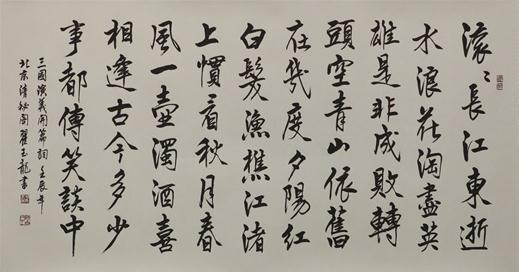 滚〻長江東逝
水浪花淘盡英
雄是非成敗轉
頭空青山依舊
在幾度夕陽紅
白髮漁樵江渚
上慣看秋月春
風一壺濁酒喜
相逢古今多少
事都傳笑談中
三國演義開篇詞 壬辰年
北京清秘閣翟玉龍書